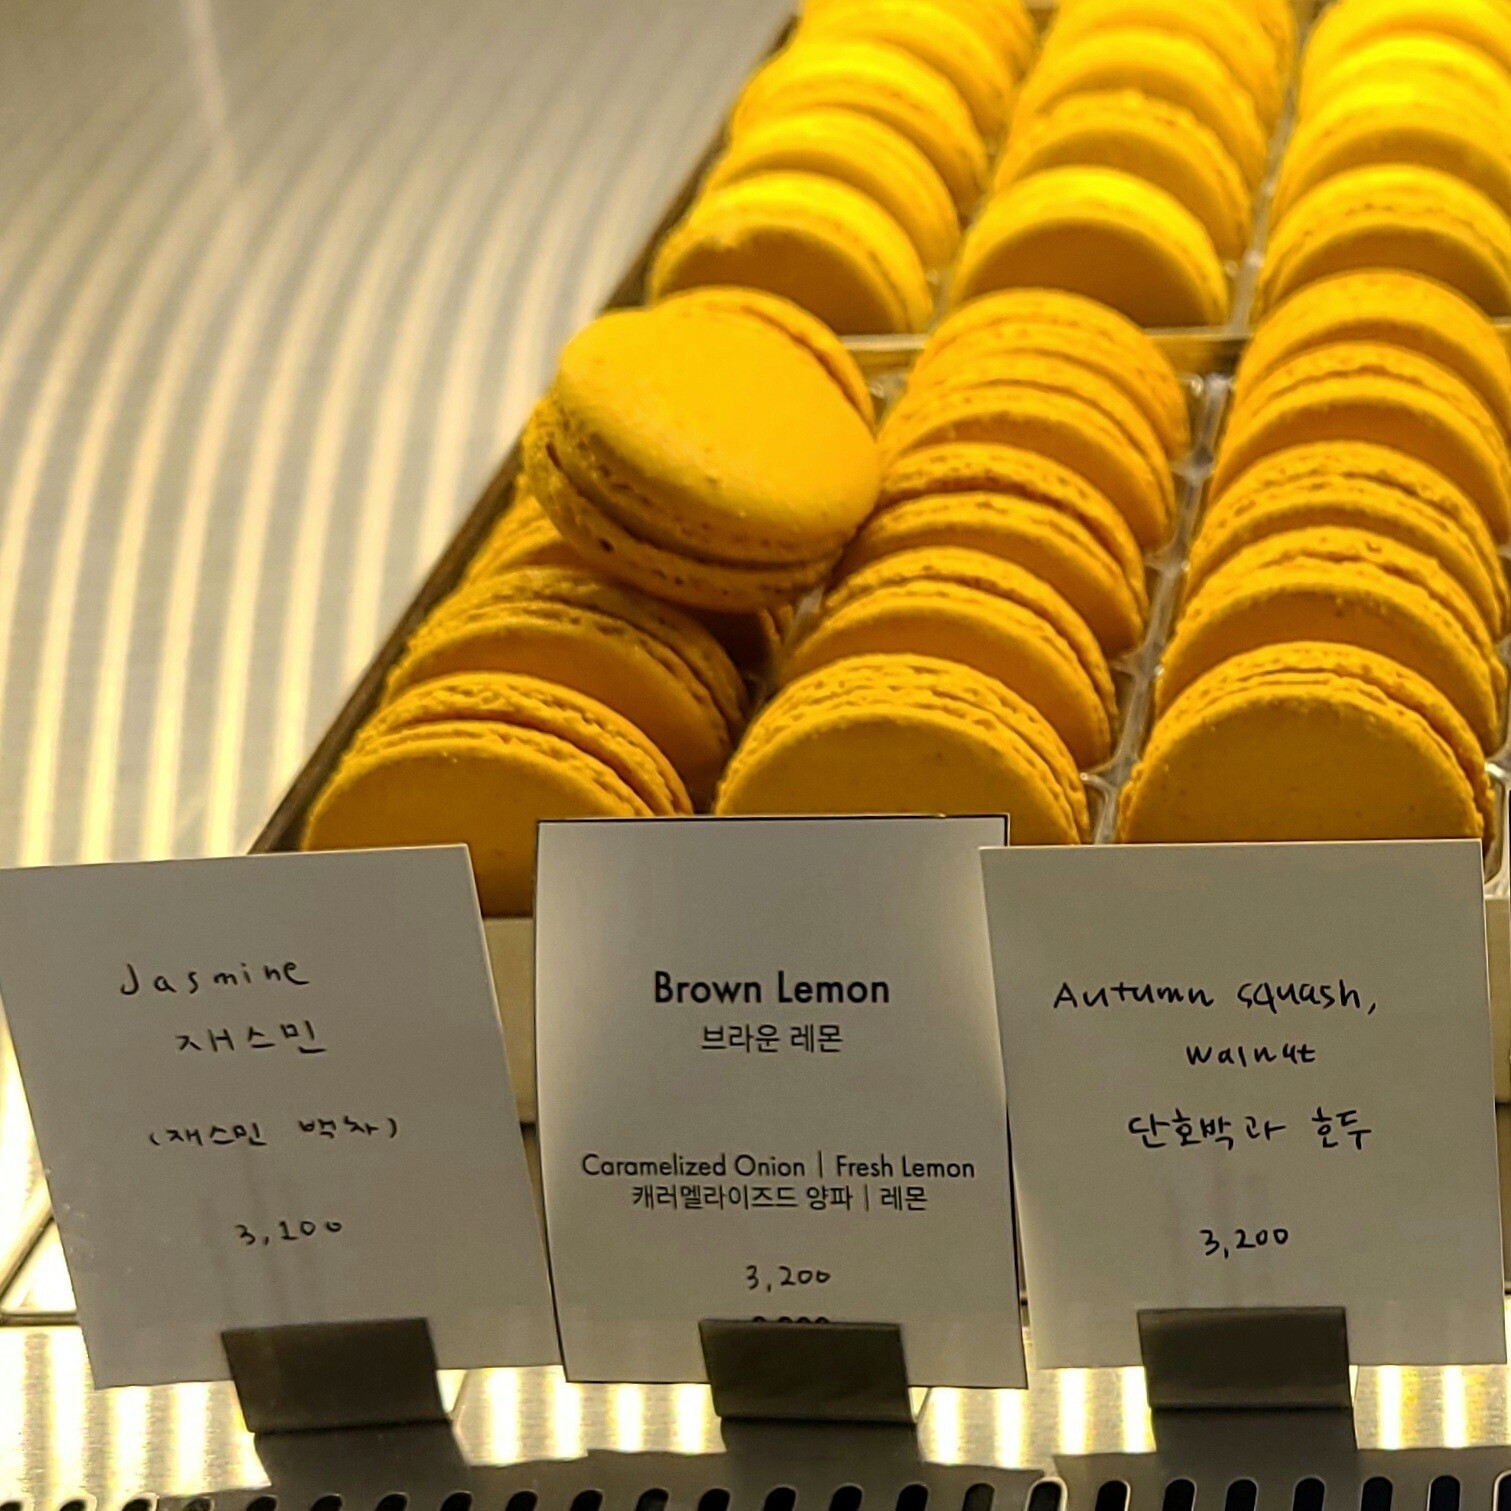 Jasmine
재스민
(재스민 백차)
3,100
Brown Lemon
브라운 레몬
Caramelized Onion | Fresh Lemon
캐러멜라이즈드 양파 | 레몬
3,200
Autumn squash,
walnut
단호박과 호두
3,200